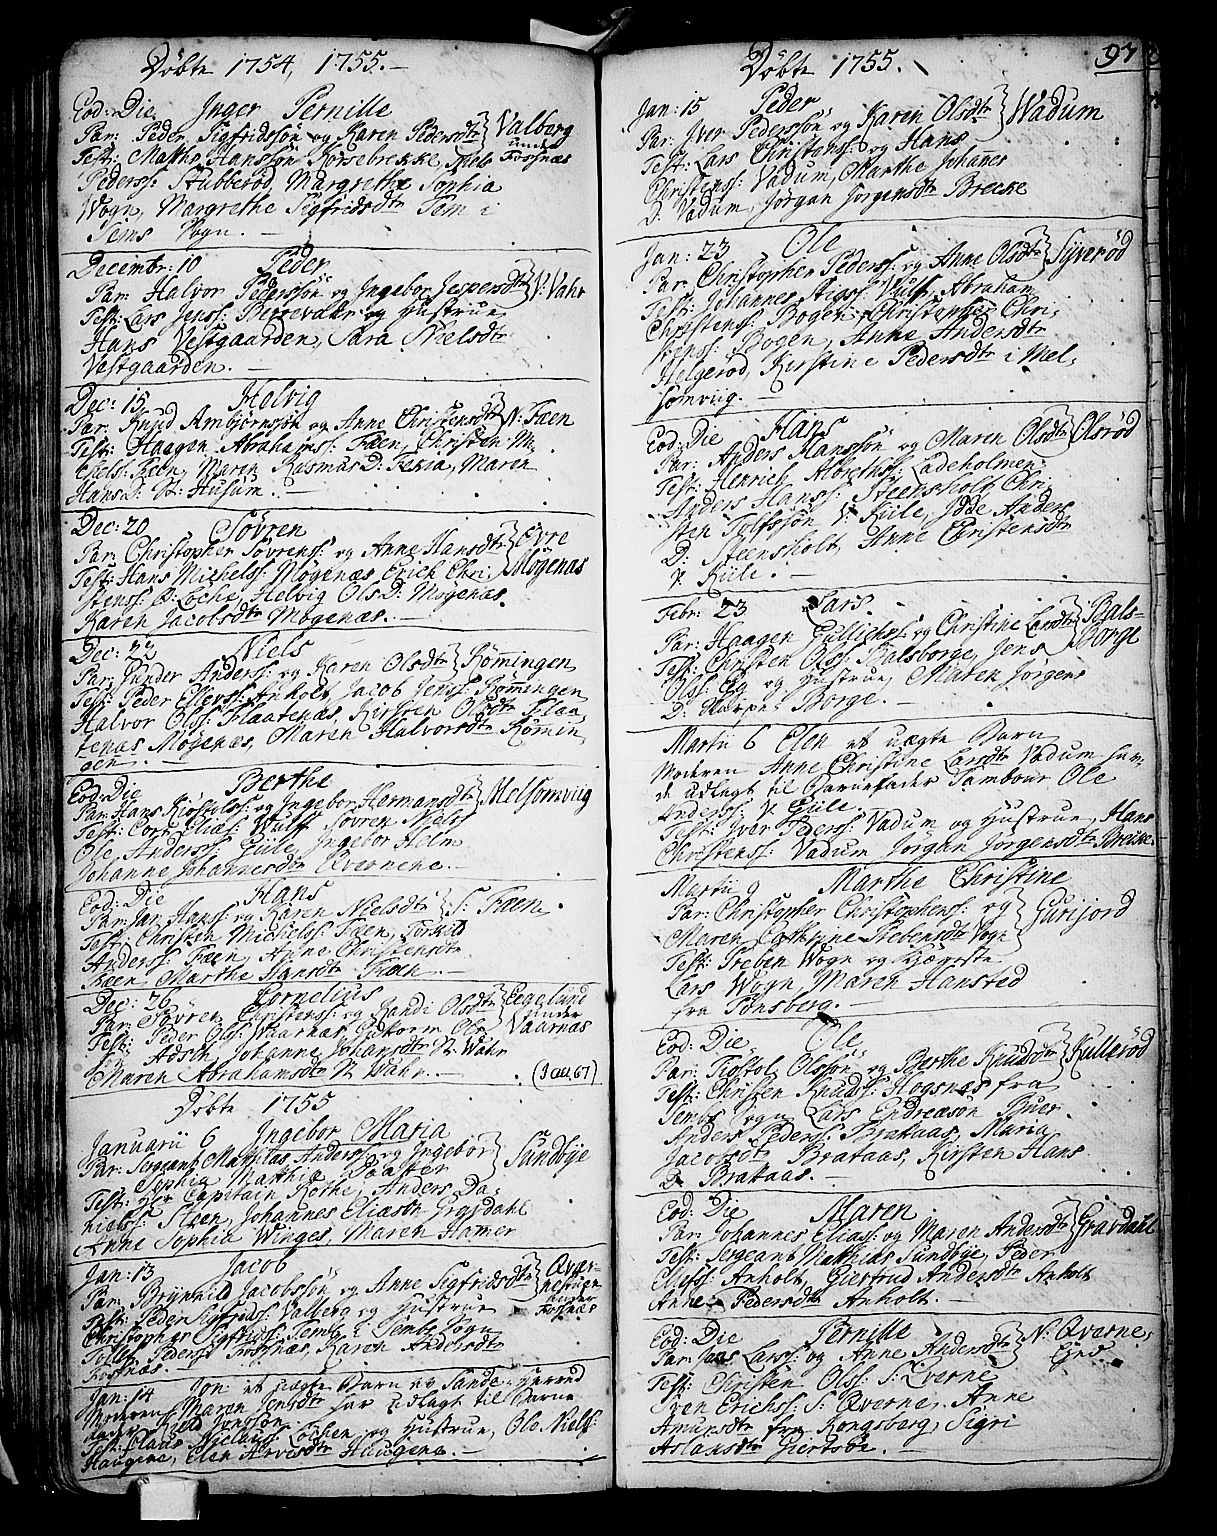 Döbte 1754, 1755.
Eod: Die Inger Pernille
Par: Peder Sigfridssön og Karen Pedersdtr Valberg
Test: Mathis Hanssön Korsebrekke, Niels under Fossnæs
Pederss: Stubberöd, Margrethe Sophia
Wogn, Margrethe Sigfridsdtr Sem i
Sems Sogn.
Decembr: 10 Peder
Par: Halvor Pederssön og Ingebor Jespersdtr N: Vahr
Test: Lars Jenss: Burevahr og Hustrue,
Hans Vestgaarden, Sara Nielsdtr
Vestgaarden.
Dec: 15 Helvig
Par: Knud Ambjörnssön og Anne Christensdtr N: Fæen
Test: Haagen Abrahamss: Fæen, Christen Mi,
chels: Fæen, Maren Rasmus D: Maren
Hans D: N: Husum.
Dec: 20 Sövren
Par: Christopher Sövrens: og Anne Hansdtr Övre
Test: Hans Michelss: Mögenæs Erich Chri, Mögenæs
stenss: Ö: Löche, Helvig Ols D: Mögenæs,
Karen Jacobsdtr Mögenæs.
Dec: 22 Niels
Par: Gunder Anderss: og Karen Olsdtr Römmingen
Test: Peder Ellevss: Anholt, Jacob Jenss: Römingen
Halvor Olss: Flaatenæs, Kirsten Olsdtr Flaa,
tenæs Mögenæs, Maren Halvorsdtr Römin,
gen.
Eod: Die Berthe
Par: Hans Ingebor Hermansdtr Melsomviig
Test: Cort Eliæs: Wulff Sövren Niels:
Ole Anderss: Giile, Ingebor Helm
Johanne Johannesdtr Qvernene.
Eod: Die Hans
Par: Jan Hanss: og Karen Nielsdtr S: Fæen
Test: Christen Michelss: Fæen, Torkild
Anderss: Fæen, Anne Christensdtr
Fæen, Marthe Hansdtr Fæen.
Dec: 26 Cornelius
Par: Sövren Christenss: og Randi Olsdtr Eegelund
Test: Peder Olss: Waarnæs, Guttorm Ols: under Vaarnæs
Johanne Johansdtr N: Wahr
Maren Abrahamsdtr N: Wahr.
Döbte 1755
Januarii 6 Ingebor Maria
Par: Sergeant Mathias Anderss: og Ingebor Sundbye
Sophia Matthia Paaster
Test: Hr Capitain Röthe, Anders Da,
nielss: Steen, Johannes Eliasön Gravdahl
Anne Sophia Winges, Maren Hamer
Jan: 13 Jacob
Par: Brynild Jacobssön og Anne Sigfridsdtr Qvær-
Test: Peder Sigfrids: Valberg og Hustrue nestuen under
Christopher Sigfrids: Semb i Sembs Sogn Fossnæs
Pederss: Fossnæs, Karen Andersdtr
Fossnæs.
Jan: 14 Jon et uægte Barn af Sande-Herred
Moderen Maren Jensdtr har udlagt til Barne
fader Jonssön.
Test: Claus Nielss: Löchen og Hustrue, Ole Niels:
Haugene, Elen Arvesdtr Haugene.
Döbte 1755. 97
Jan: 15 Peder
Par: Iver Pederssön og Karen Olsdtr Wadum
Test: Lars Christenss: og Hans
Christenss: Vadum, Marthe Johannes
D: Vadum, Jörgan Jörgensdtr Brecke
Jan: 23 Ole
Par: Christopher Pederss: og Anne Olsdtr Syveröd
Test: Johannes Wulf, Abraham
Christenss: Bogen, Christopher Chri,
stenss: Bogen, Anne Andersdtr
Helgeröd, Kirstine Pedersdtr i Mel,
somviig.
Eod: Die Hans
Par: Anders Hanssön og Maren Olsdtr Olsröd
Test: Henrich Albrethss: Ladeholmen
Anders Hanss: Steensholt, Chri,
sten Tolfssön V: Kiile, Idde Anders
D: Steensholt, Anne Christensdtr
V. Kiile.
Febr: 23 Lars
Par: Haagen Gullichs: og Christine Larsdtr Bals-
Test: Christen Olss: Balsborge, Jens borge
Olss: Eg og Hustrue, Maren Jörgens
D: Borge.
Martii 6 Elen et uægte Barn
Moderen Anne Christine Larsdtr Vadum ha,
de udlagt til Barnefader Tambour Ole
Anderss: V: Giile.
Test: Iver Pederss: Vadum og Hustrue, Hans
Christenss: Vadum Jörgan Jörgensdtr Breike
Martii 9 Marthe Christine
Par: Christopher Christopherss: og Gurijord
Maren Cathrine Trebensdtr Vogn
Test: Preben Wogn og Kjæreste
Lars Wogn Maren Hansted
fra Tönsberg.
Eod: Die Ole
Par: Tiöstol Olssön og Berthe Knudsdtr Kulleröd
Test: Christen Knuds: Hogsnæs fra
Sembs Sogn, Lars Endreæsön Buer
Anders Pederss: Brataas, Maria
Jacobsdtr Brataas, Kirsten Hans
D: Brataas.
Eod: Die Maren
Par: Johannes Elias: og Maren Andersdtr Gravdahl
Test: Sergeant Mathias Sundbye, Peder
Ellefs: Anholt, Giertrud Andersdtr Anholt
Anne Pedersdtr Anholt.
Eod: Die Pernille
Par: Jens Larss: og Anne Andersdtr N: Qverne,
Test: Christen Olss: S: Qverne Ejed
Even Erichs: S: Qverne, Anne
Amundsdtr fra Kongsberg, Sigri
Aslaksdtr Giertsöe.